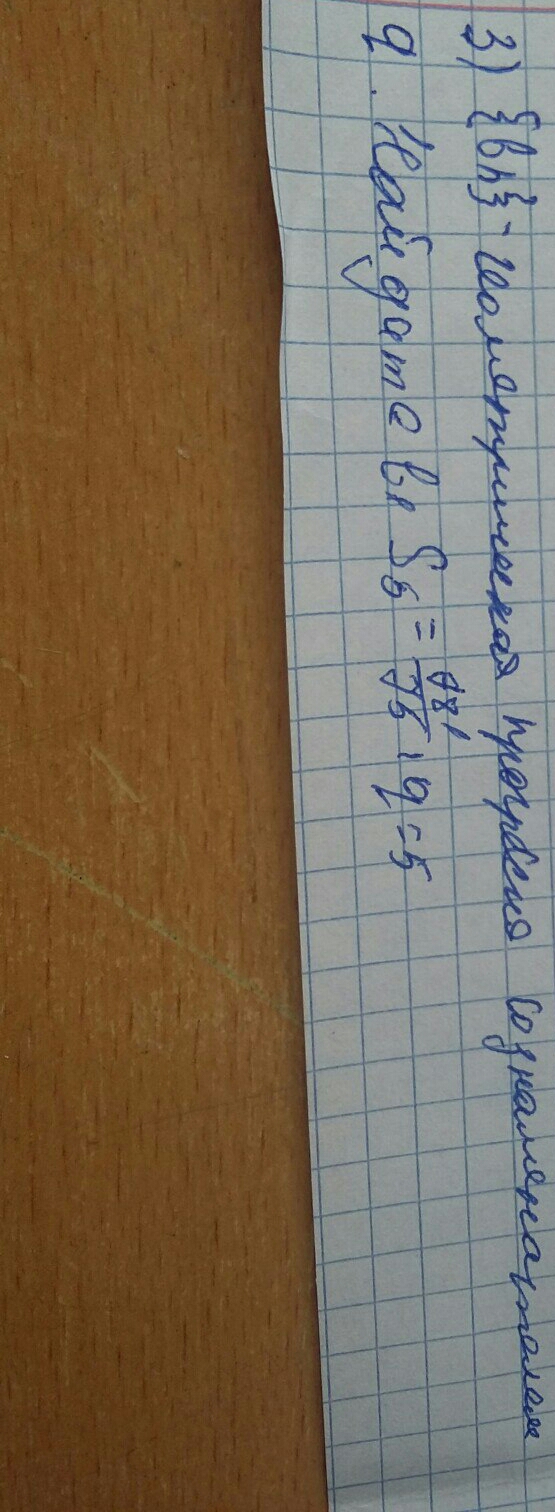 3) {bn} - геометрическая прогресия со знаменателем
q. Найдите b1 S5 = 781/75, q=5